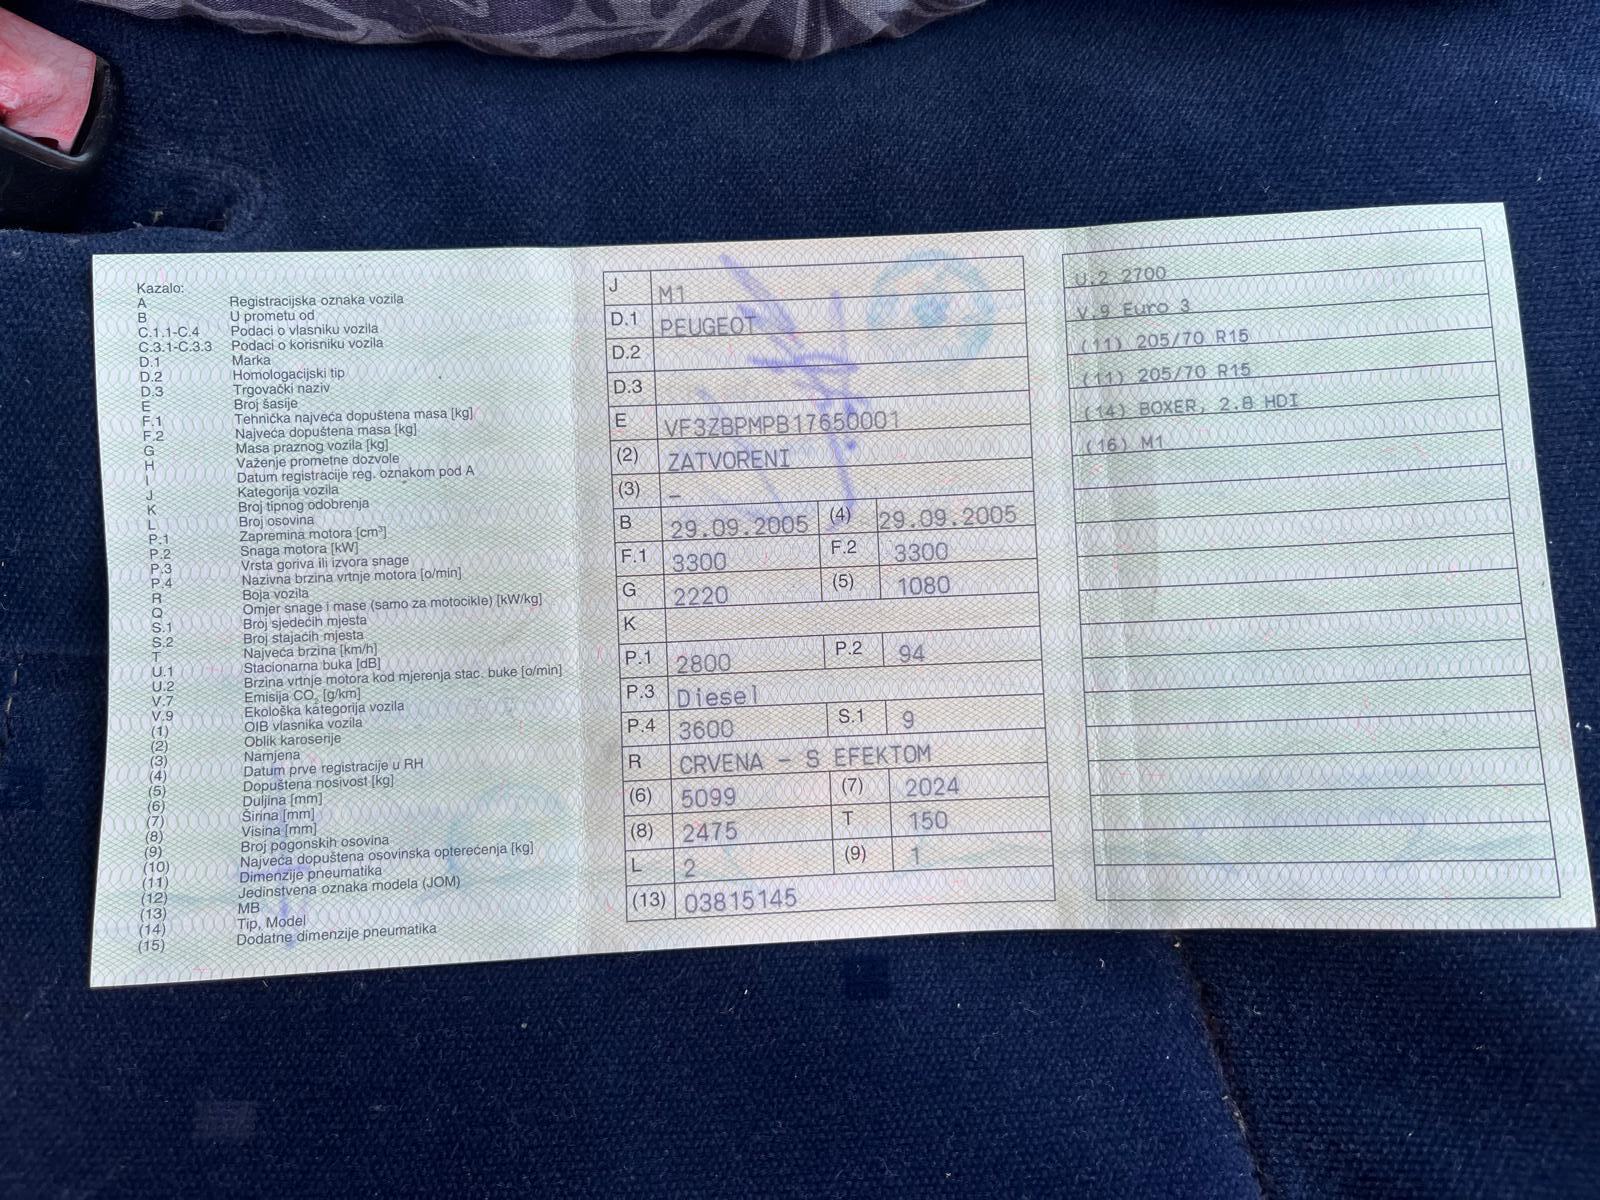 Kazalo:
A Registracijska oznaka vozila
B U prometu od
C.1.1-C.4 Podaci o vlasniku vozila
C.3.1-C.3.3 Podaci o korisniku vozila
D.1 Marka
D.2 Homologacijski tip
D.3 Trgovački naziv
E Broj šasije
F.1 Tehnička najveća dopuštena masa [kg]
F.2 Najveća dopuštena masa [kg]
G Masa praznog vozila [kg]
H Važenje prometne dozvole
I Datum registracije reg. oznakom pod A
J Kategorija vozila
K Broj tipnog odobrenja
L Broj osovina
P.1 Zapremina motora [cm³]
P.2 Snaga motora [kW]
P.3 Vrsta goriva ili izvora snage
P.4 Nazivna brzina vrtnje motora [o/min]
R Boja vozila
Q Omjer snage i mase (samo za motocikle) [kW/kg]
S.1 Broj sjedećih mjesta
S.2 Broj stajaćih mjesta
T Najveća brzina [km/h]
U.1 Stacionarna buka [dB]
U.2 Brzina vrtnje motora kod mjerenja stac. buke [o/min]
V.7 Emisija CO₂ [g/km]
V.9 Ekološka kategorija vozila
(1) OIB vlasnika vozila
(2) Oblik karoserije
(3) Namjena
(4) Datum prve registracije u RH
(5) Dopuštena nosivost [kg]
(6) Duljina [mm]
(7) Širina [mm]
(8) Visina [mm]
(9) Broj pogonskih osovina
(10) Najveća dopuštena osovinska opterećenja [kg]
(11) Dimenzije pneumatika
(12) Jedinstvena oznaka modela (JOM)
(13) MB
(14) Tip, Model
(15) Dodatne dimenzije pneumatika
J M1
D.1 PEUGEOT
D.2
D.3
E VF3ZBPMPB17650001
(2) ZATVORENI
(3) –
B 29.09.2005 (4) 29.09.2005
F.1 3300 F.2 3300
G 2220 (5) 1080
K
P.1 2800 P.2 94
P.3 Diesel
P.4 3600 S.1 9
R CRVENA - S EFEKTOM
(6) 5099 (7) 2024
(8) 2475 T 150
L 2 (9) 1
(13) 03815145
U.2 2700
V.9 Euro 3
(11) 205/70 R15
(11) 205/70 R15
(14) BOXER, 2.8 HDI
(16) M1